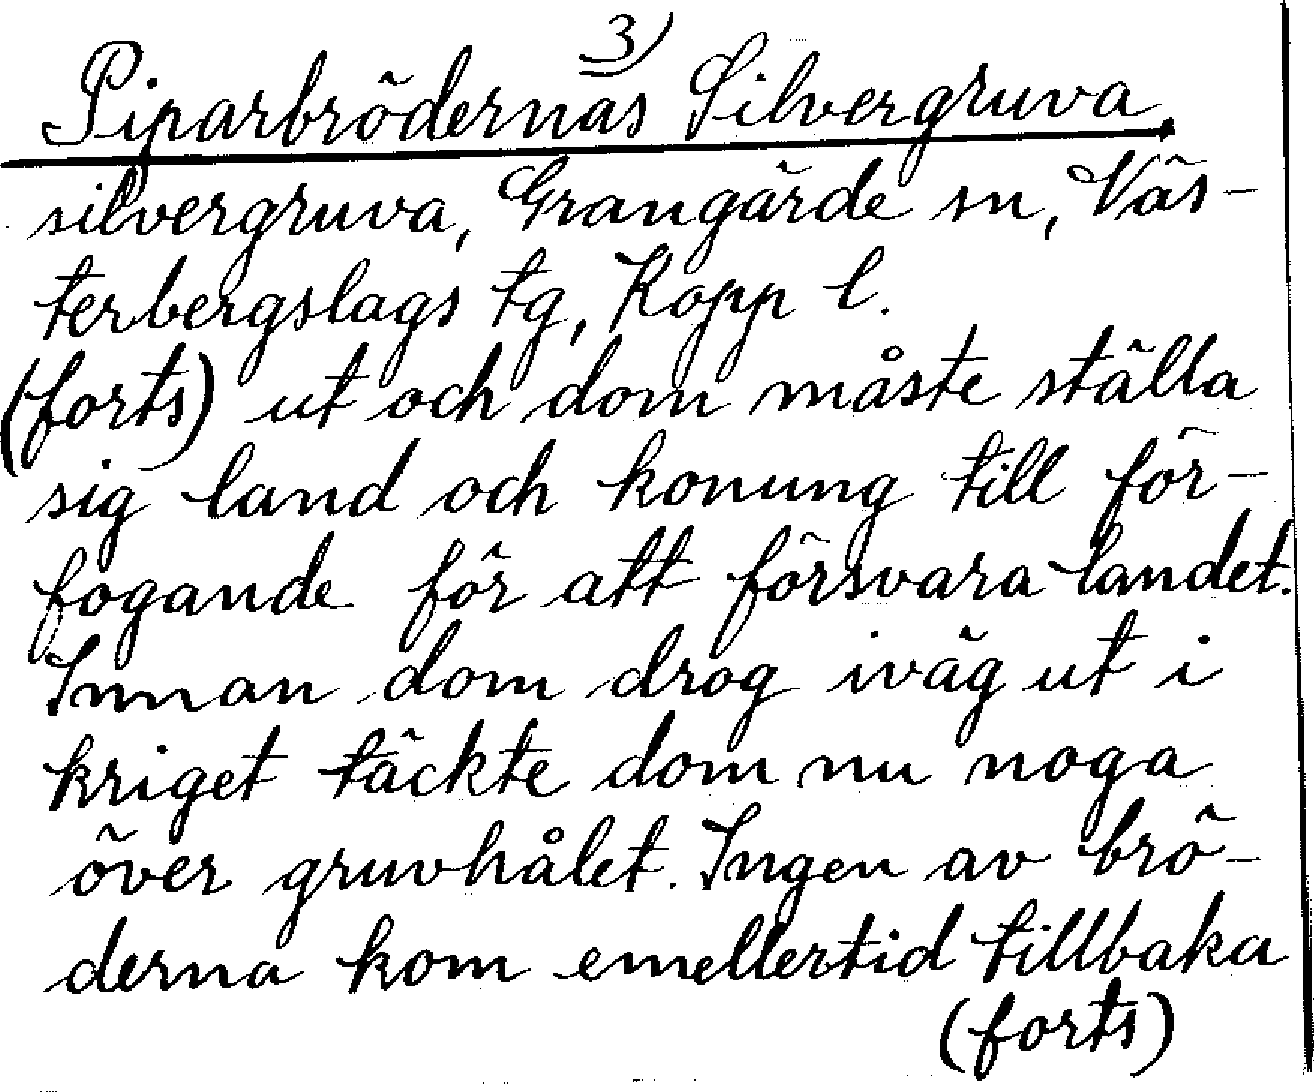 3)
Piparbrödernas Silvergruva.
silvergruva, Grangärde sn, Väs-
terbergslags tg, Kopp l.
(forts) ut och dom måste ställa
sig land och konung till för-
fogande för att försvara landet.
Innan dom drog iväg ut i
kriget täckte dom nu noga
över gruvhålet. Ingen av brö-
derna kom emellertid tillbaka
(forts)